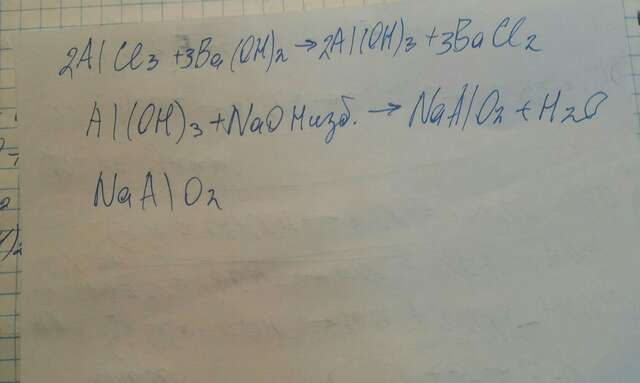 2AlCl3 +3Ba(OH)2 → 2Al(OH)3 + 3BaCl2
Al(OH)3 + NaOH изб. → NaAlO2 + H2O
NaAlO2